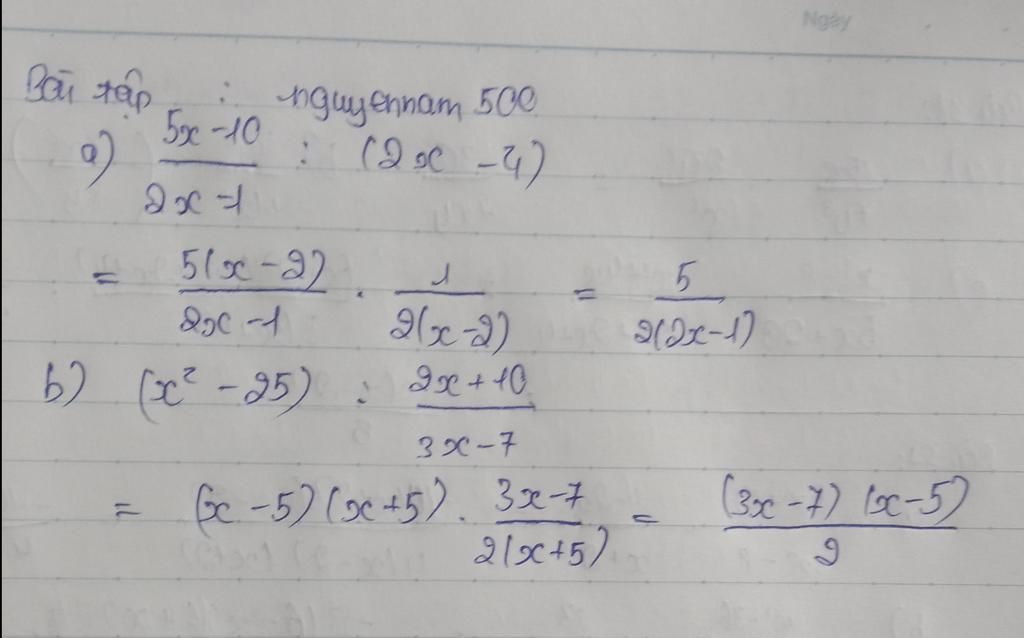 Ngày
Bài tập : nguyennam 500
a) \frac{5x-10}{2x-1} : (2x-4)
= \frac{5(x-2)}{2x-1} . \frac{1}{2(x-2)} = \frac{5}{2(2x-1)}
b) (x² - 25) : \frac{2x+10}{3x-7}
= (x-5)(x+5) . \frac{3x-7}{2(x+5)} = \frac{(3x-7)(x-5)}{2}